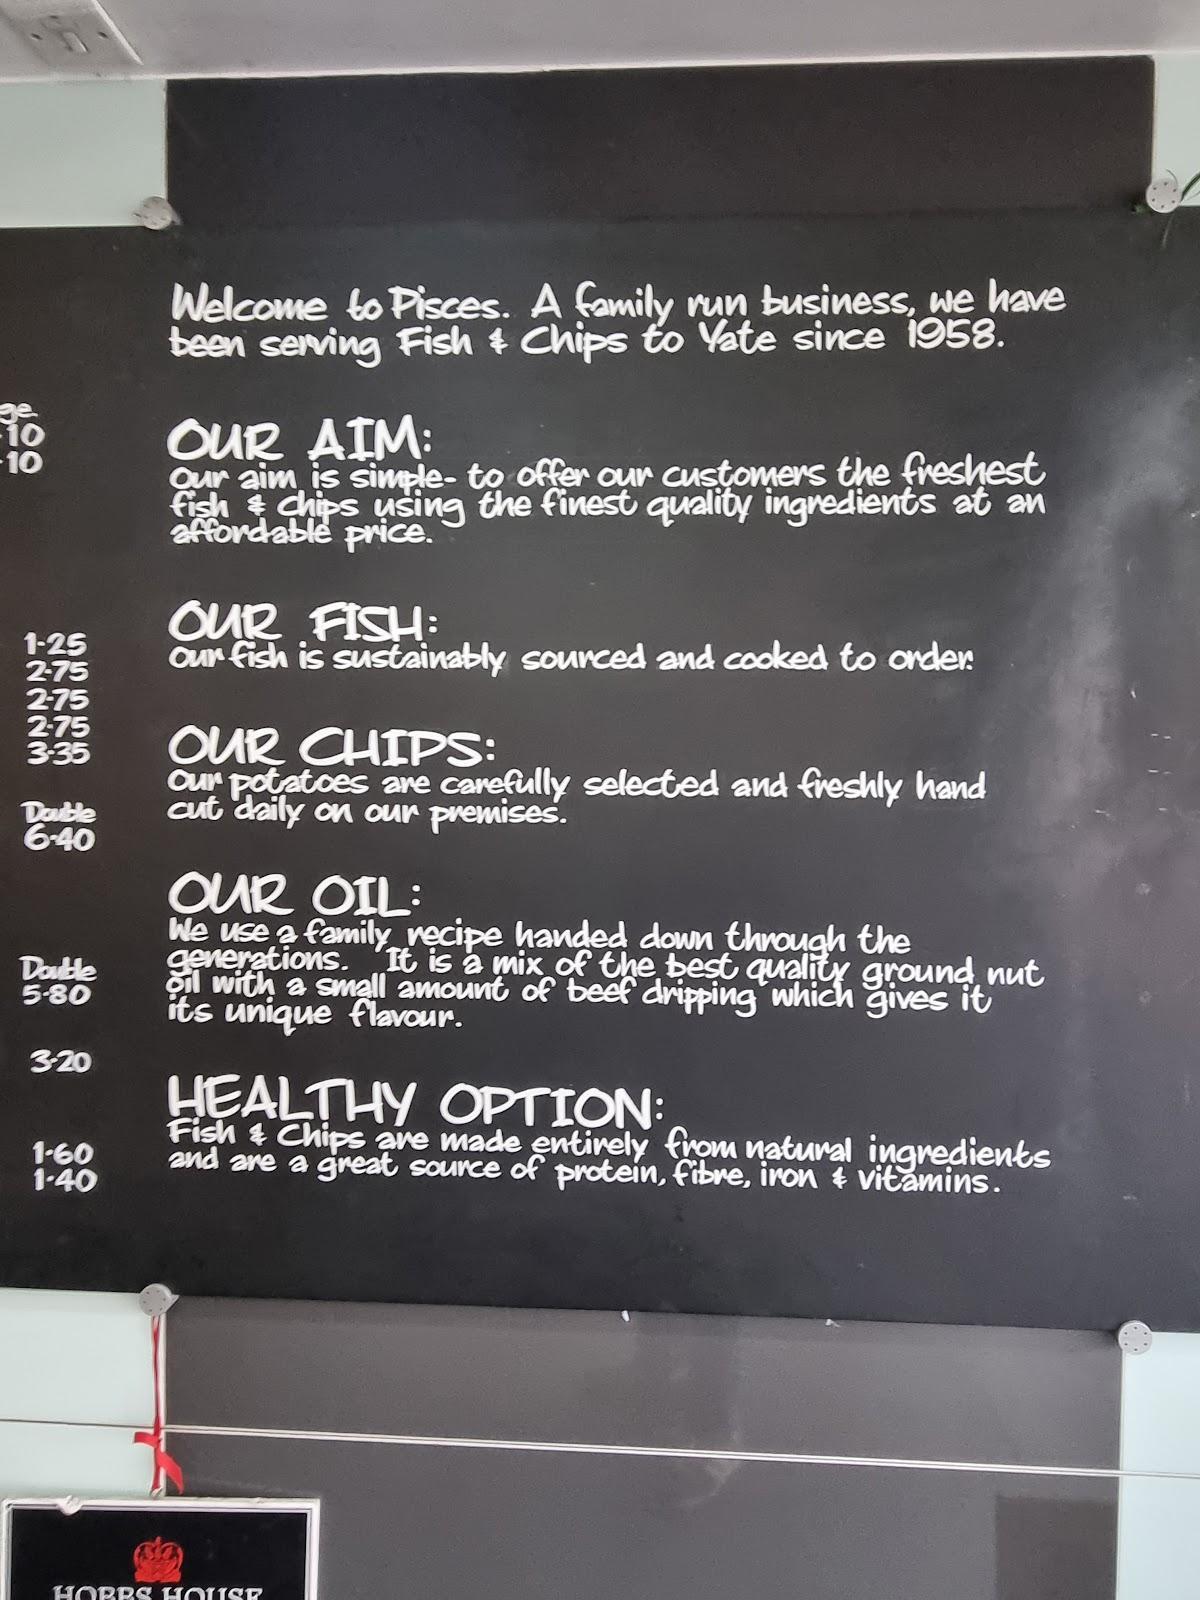 Welcome to Pisces. A family run business, we have
been serving Fish & Chips to Yate since 1958.
OUR AIM:
Our aim is simple- to offer our customers the freshest
fish & chips using the finest quality ingredients at an
affordable price.
OUR FISH:
Our fish is sustainably sourced and cooked to order.
OUR CHIPS:
Our potatoes are carefully selected and freshly hand
cut daily on our premises.
OUR OIL:
We use a family recipe handed down through the
generations. It is a mix of the best quality ground nut
oil with a small amount of beef dripping which gives it
its unique flavour.
HEALTHY OPTION:
Fish & Chips are made entirely from natural ingredients
and are a great source of protein, fibre, iron & vitamins.
1-25
2-75
2-75
2-75
3-35
Double
6-40
Double
5-80
3-20
1-60
1-40
HOBBS HOUSE